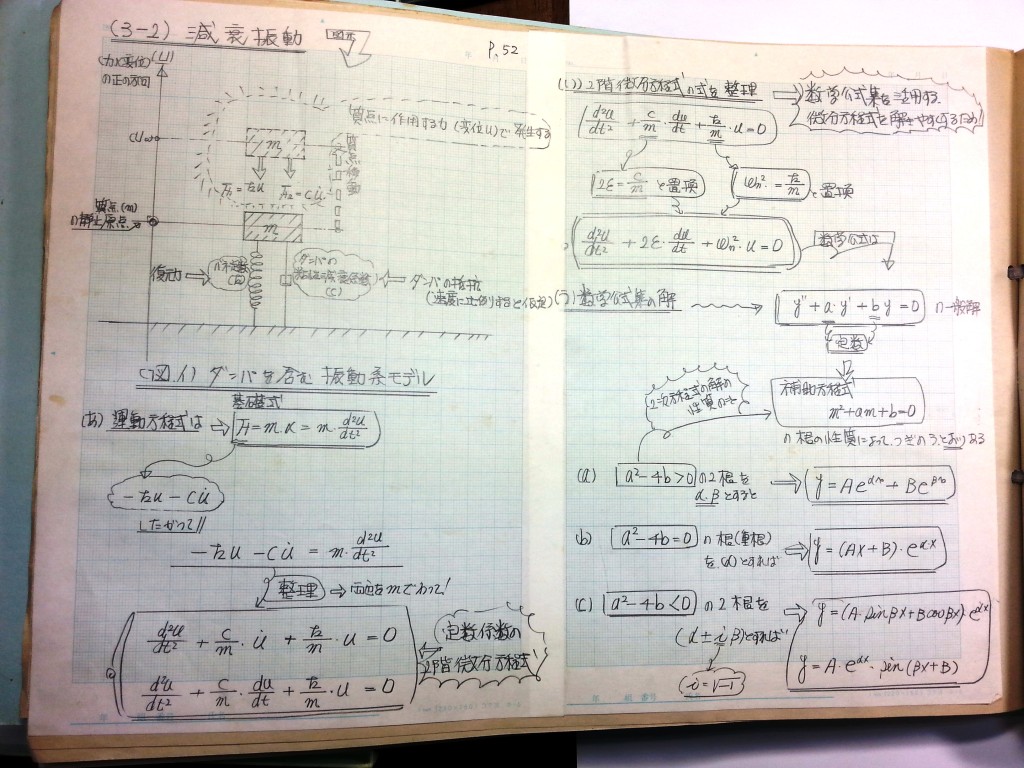 (3-2) 減衰振動
P.52
(力)(変位)(U)
の正の方向
質点に作用する力(変位U)で発生する
m
F₁=kU
F₂=cu̇
質点(m)
の静止原点
m
復元力
バネ定数
(k)
ダンパの
粘性減衰係数
(c)
ダンパの抵抗
(速度に比例すると仮定)
(図.イ) ダンパを含む振動系モデル
基礎式
(あ) 運動方程式は ⇒ F=mα=m・d²u/dt²
-ku-cu̇
したがって//
-ku-cu̇=m・d²u/dt²
整理 ⇒ 両辺をmでわって!
d²u/dt²+c/m・u̇+k/m・u=0
d²u/dt²+c/m・du/dt+k/m・u=0
定数係数の
2階微分方程式
(い) 2階微分方程式の式を整理
数学公式集を活用する
微分方程式を解きやすくするため
d²u/dt²+c/m・du/dt+k/m・u=0
2ε=c/m と置換
ωn²=k/m と置換
d²u/dt²+2ε・du/dt+ωn²・u=0
数学公式は
(う) 数学公式集の解
y″+a・y′+by=0 の一般解
定数
2次方程式の解の
性質のこと
補助方程式
m²+am+b=0
の根の性質によって、つぎのようとおりある
(a) a²-4b>0 の2根を
α.βとすると
y=Ae^αx+Be^βx
(b) a²-4b=0 の根(重根)
を(α)とすれば
y=(Ax+B)・e^αx
(c) a²-4b<0 の2根を
(α±iβ)とすれば
y=(A・sinβx+Bcosβx)・e^αx
y=A・e^αx・sin(βx+B)
i=√-1